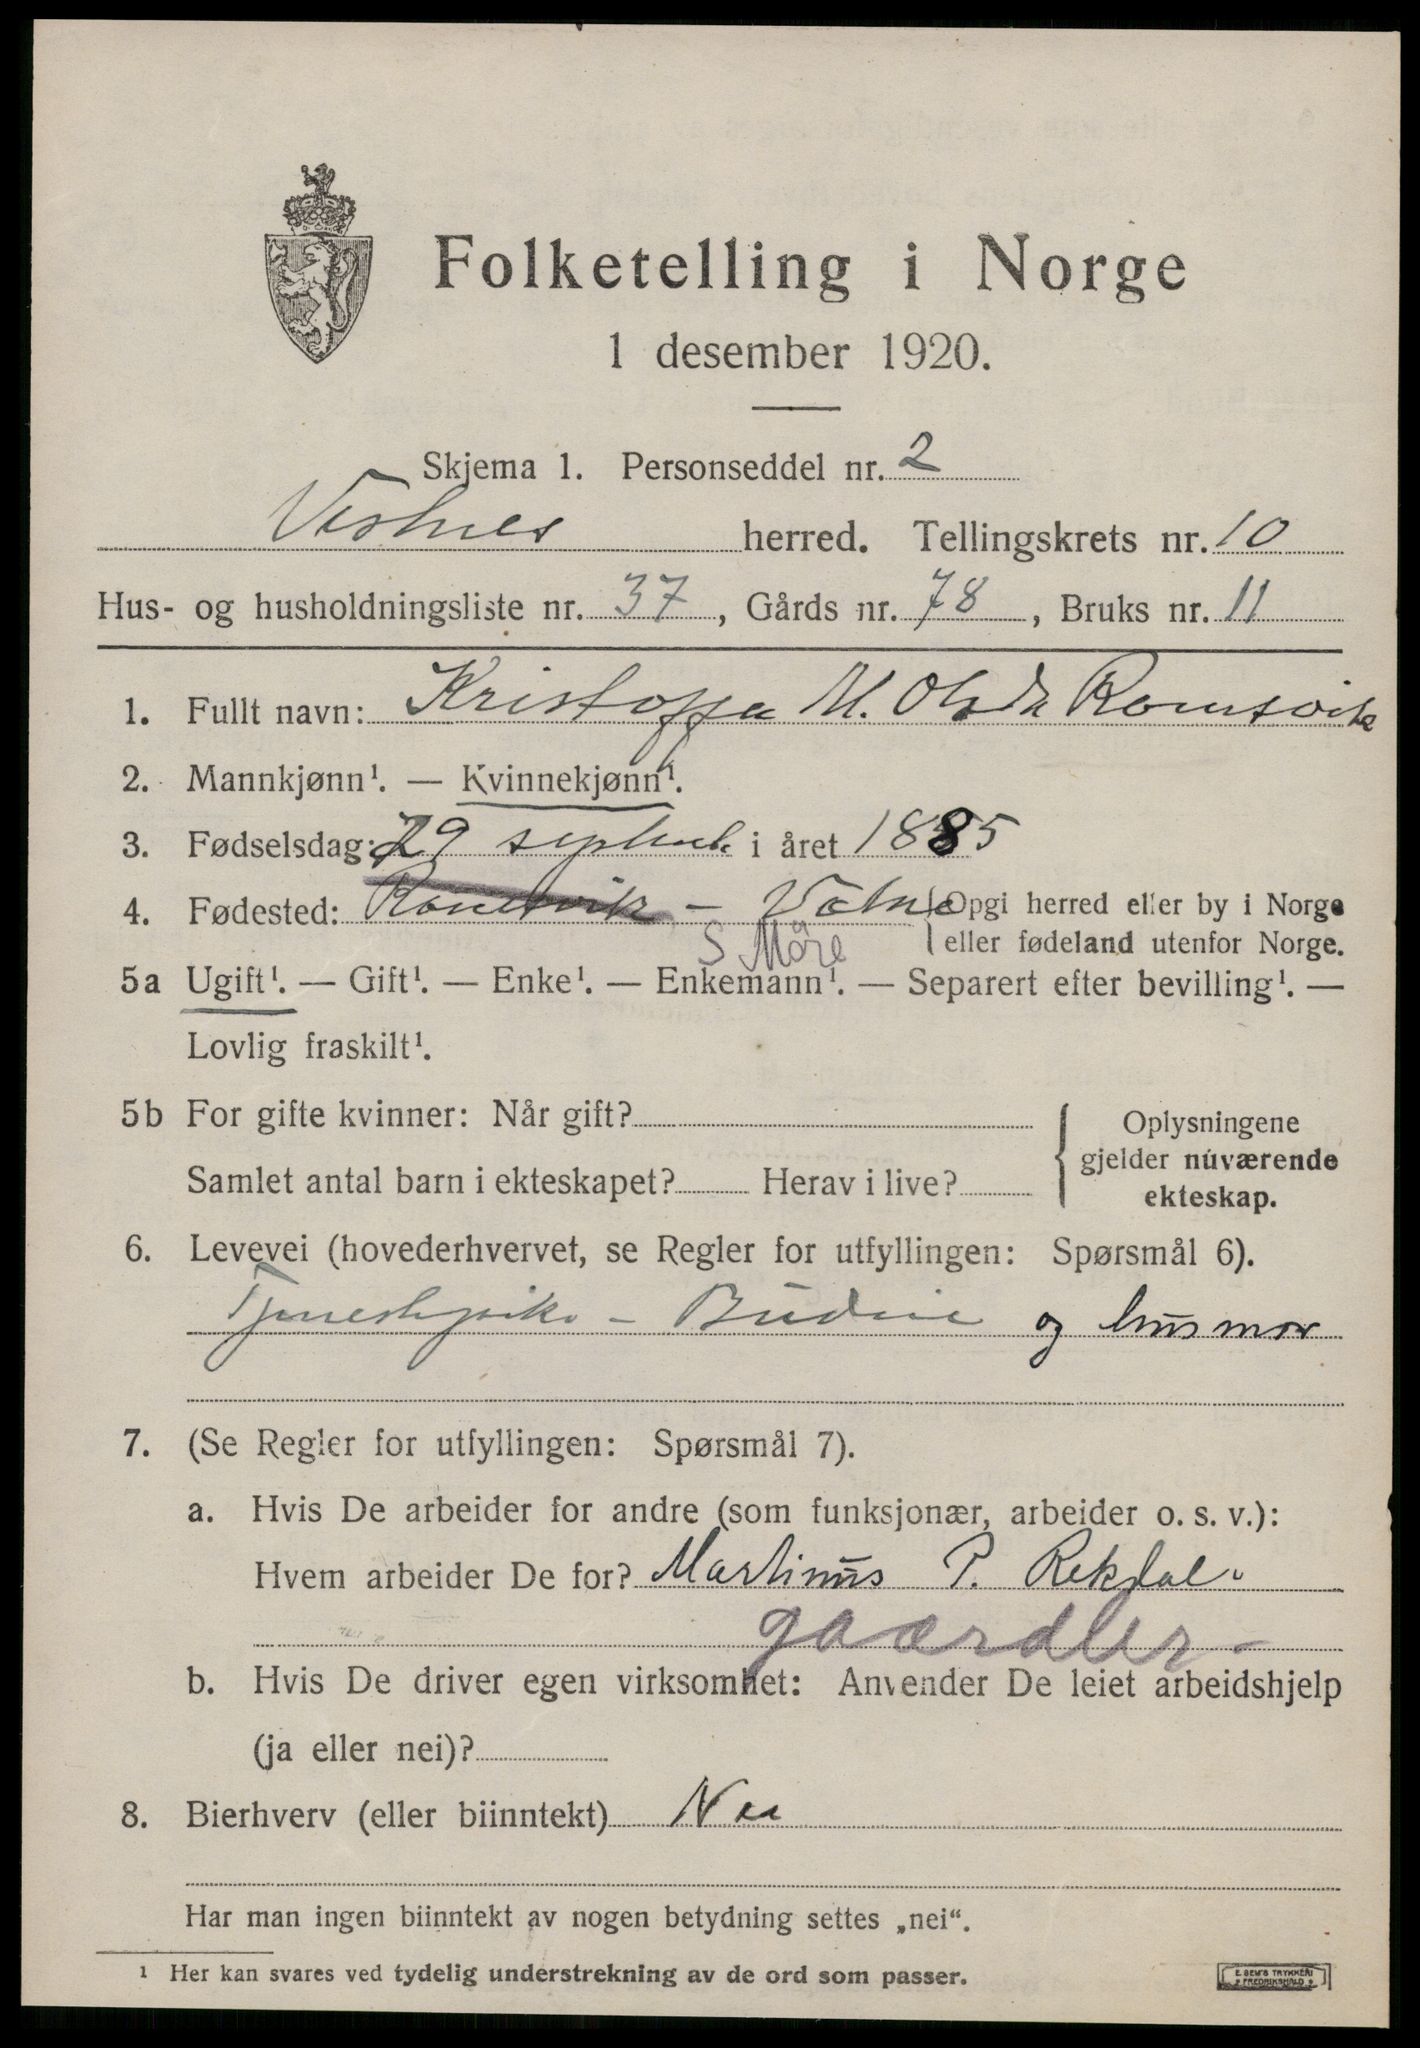 Folketelling i Norge
1 desember 1920.
Skjema 1. Personseddel nr. 2
Vestnes herred. Tellingskrets nr. 10
Hus- og husholdningsliste nr. 37, Gårds nr. 78, Bruks nr. 11
1. Fullt navn: Kristoffa M. Olsdr Romsvik
2. Mannkjønn¹. — Kvinnekjønn¹.
3. Fødselsdag: 29 septemb. i året 1885
4. Fødested: Romsvik - Vatne {Opgi herred eller by i Norge
S Möre eller fødeland utenfor Norge.
5a Ugift¹. — Gift¹. — Enke¹. — Enkemann¹. — Separert efter bevilling¹. —
Lovlig fraskilt¹.
5b For gifte kvinner: Når gift? Oplysningene
gjelder núværende
Samlet antal barn i ekteskapet? Herav i live?
ekteskap.
6. Levevei (hovederhvervet, se Regler for utfyllingen: Spørsmål 6).
- Budeie og husmor
7. (Se Regler for utfyllingen: Spørsmål 7).
a. Hvis De arbeider for andre (som funksjonær, arbeider o. s. v.):
Hvem arbeider De for? Martinus P. Rekdal
b. Hvis De driver egen virksomhet: Anvender De leiet arbeidshjelp
(ja eller nei)?
8. Bierhverv (eller biinntekt) Nei
Har man ingen biinntekt av nogen betydning settes „nei“.
¹ Her kan svares ved tydelig understrekning av de ord som passer.
E. SEM'S TRYKKERI
FREDRIKSHALD